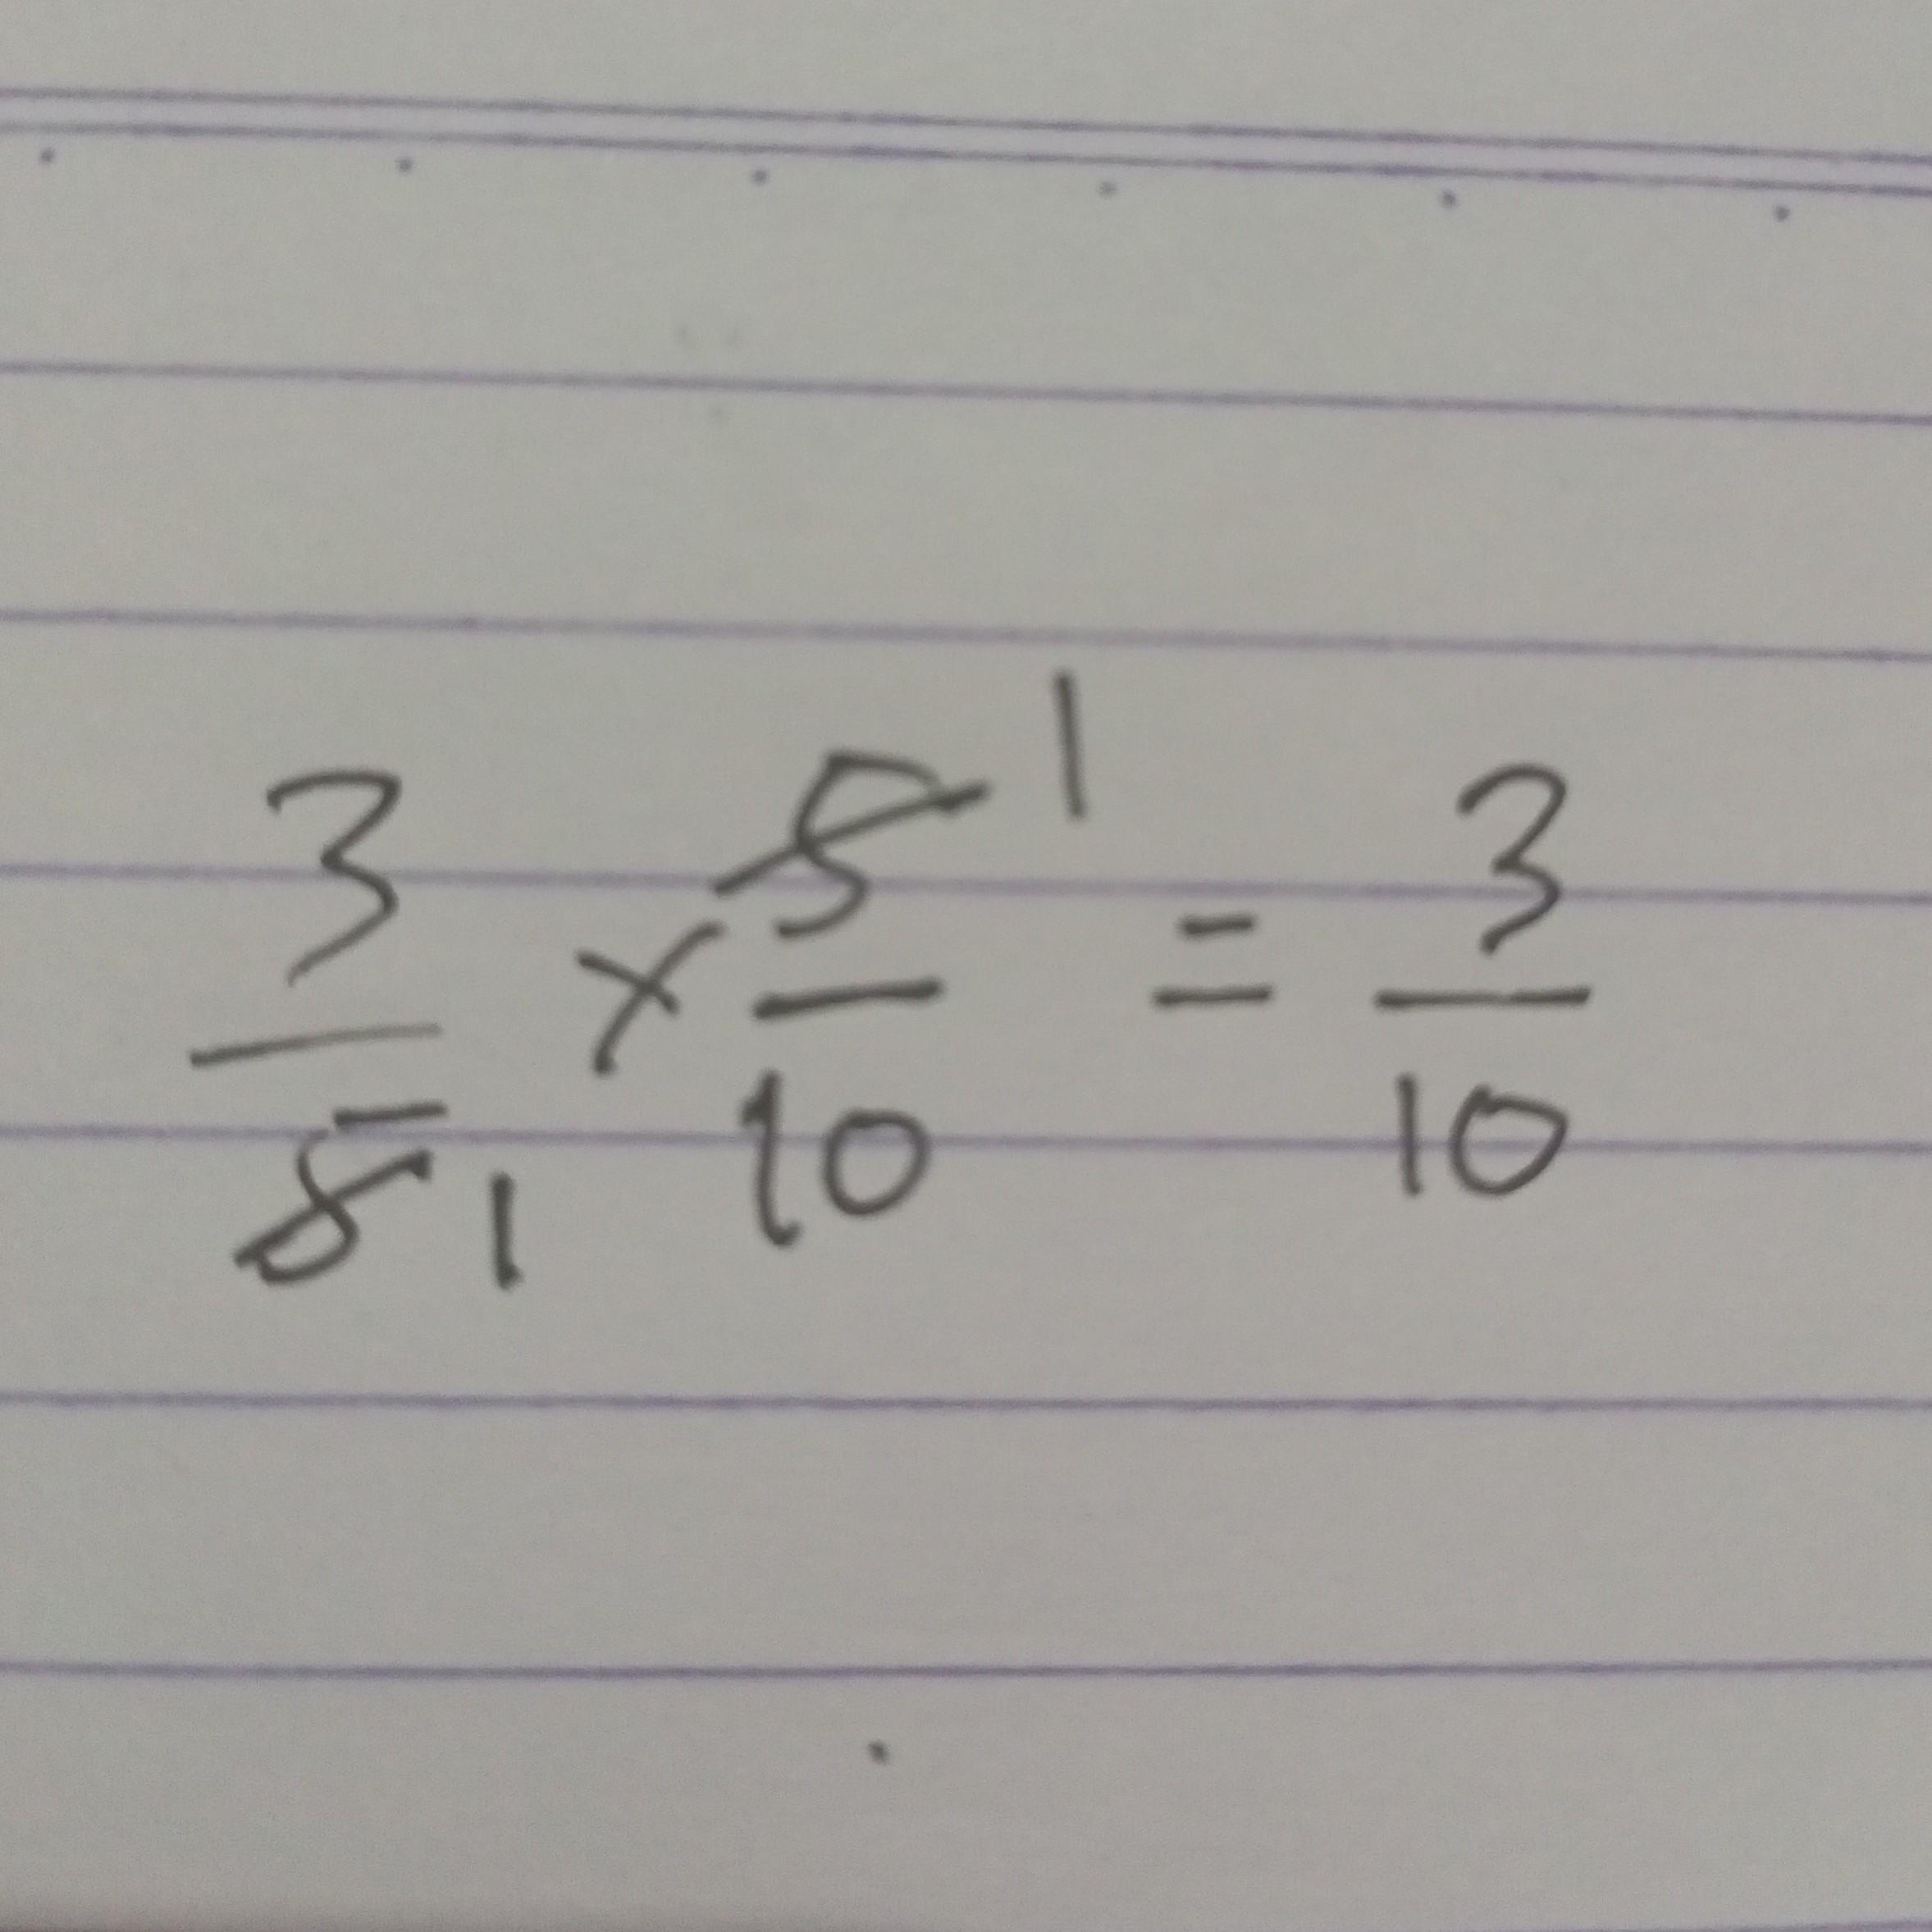 3/5 1 × 5/10 1 = 3/10